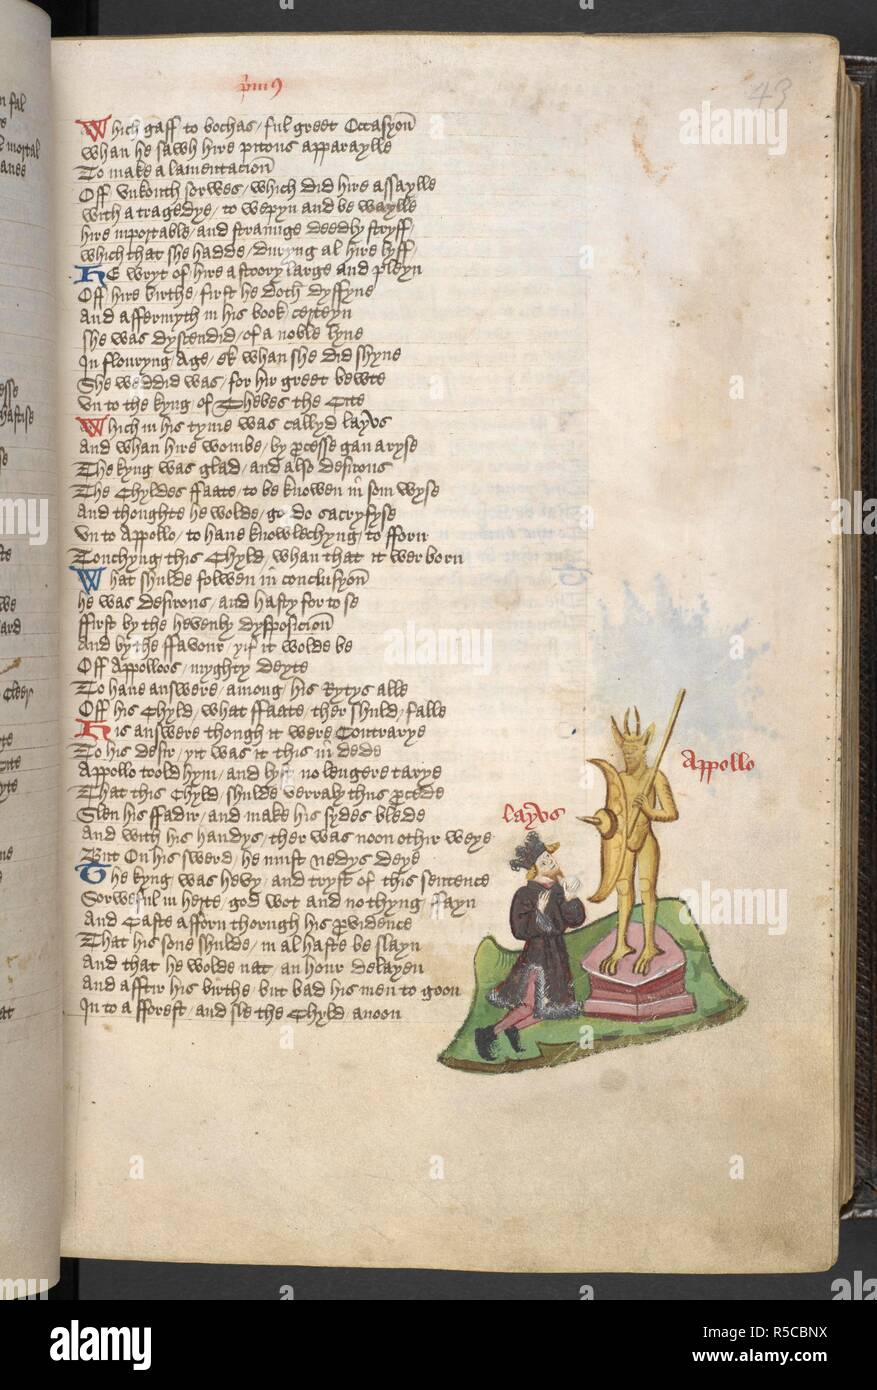 prim9
43
Which gaff to bochas / ful greet Occasyon
Whan he sawh hire pitous apparaylle
To make a lamentacion
Off vnkouth sorwes / which did hire assaylle
With a tragedye / to wepyn and be waylle
hire inportable / and straunge deedly stryff /
Which that she hadde / duryng al hire lyff /
HE wryt of hire a stoory large and pleyn
Off hire birthe / first he doth dyffyne
And affermyth in his book certeyn
She was dyscendid / of a noble lyne
In flouryng Age / ek whan she did shyne
She weddid was / for hir greet bewte
Vn to the kyng / of Thebes the Cite
Which in his tyme was callyd layus
And whan hire wombe / by processe gan aryse
The kyng was glad / and also desirous
The Chyldes ffaate / to be knowen in som wyse
And thoughte he wolde / go do sacryfyse
Vn to Appollo / to haue knowlechyng / to fforn
Touchyng this Chyld / whan that it wer born
What shulde folwen in conclusyon
he was desirous / and hasty for to se
ffirst by the hevenly dysposicion
And by the ffavour / yif it wolde be
Off Appolloos / myghty deyte
To haue answere / among his Rytys alle
Off his Chyld / what ffaate / ther shuld / falle
His answere though it were Contrarye
To his desir / yit was it this in dede
Appollo toold hym / and lyst no lengere tarye
That this Chyld / shulde verraly thus procede
Slen his ffadir / and make his sydes blede
And with his handys / ther was noon othir weye
But On his swerd / he must nedys deye
The kyng was hevy / and tryst of this sentence
Sorweful in herte / god wot and nothyng ffayn
And Caste afforn thorugh his providence
That his sone shulde / in al haste be slayn
And that he wolde nat / an hour delayen
And afftir his birthe / but bad his men to goon
In to a fforest / and sle the Chyld anoon
layus
Appollo
alamy
Image ID: R5CBNX
www.alamy.com